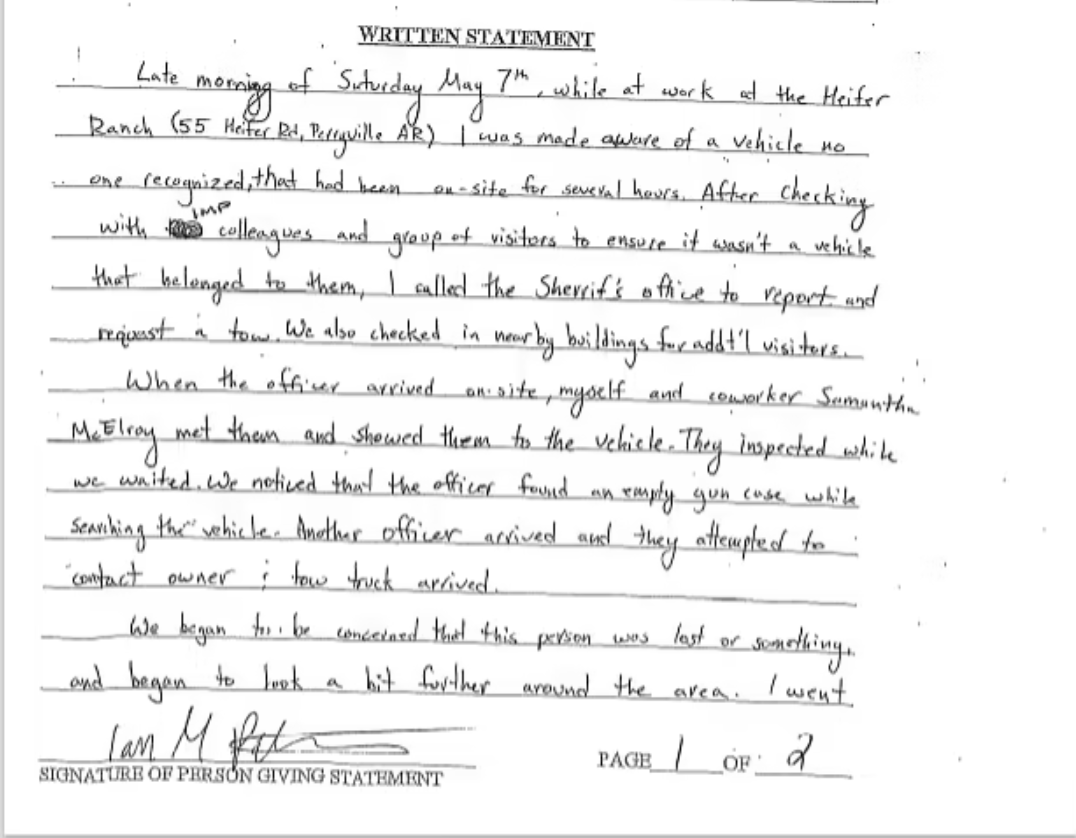 WRITTEN STATEMENT
Late morning of Saturday May 7th, while at work at the Heifer
Ranch (55 Heifer Rd, Perryville AR) I was made aware of a vehicle no
one recognized, that had been on-site for several hours. After checking
IMP
with colleagues and group of visitors to ensure it wasn't a vehicle
that belonged to them, I called the Sherrif's office to report and
request a tow. We also checked in nearby buildings for addt'l visitors.
When the officer arrived on-site, myself and coworker Samantha
McElroy met them and showed them to the vehicle. They inspected while
we waited. We noticed that the officer found an empty gun case while
searching the vehicle. Another officer arrived and they attempted to
contact owner ; tow truck arrived.
We began to be concerned that this person was lost or something,
and began to look a bit further around the area. I went
Ian M
SIGNATURE OF PERSON GIVING STATEMENT
PAGE 1 OF 2